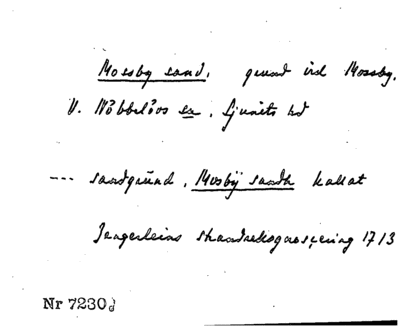 Mossby sand, grund vid Mossby,
V. Nöbbelövs sn, Ljunits hd
--- sandgrund, Mosbÿ sandh kallat
Jaegerleins strandrekognoscering 1713
Nr 7230